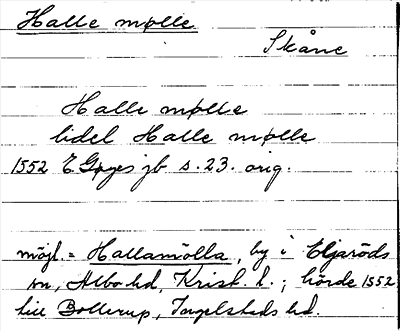 Halle mølle
Skåne
Halle mølle
lidel Halle mølle
1552 E Gøyes jb s. 23. orig.
möjl. = Hallamölla, by i Eljaröds
sn, Albo hd, Krist. l.; hörde 1552
till Bollerup, Ingelstads hd.